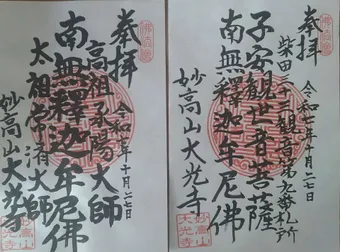 奉拝
令和七年十月二七日
柴田三十三観音第九番札所
子安観世音菩薩
南無釋迦牟尼佛
妙高山大光寺
妙高山
大光寺
奉拝
令和七年十月二七日
高祖承陽大師
南無釋迦牟尼佛
太祖常済大師
妙高山大光寺